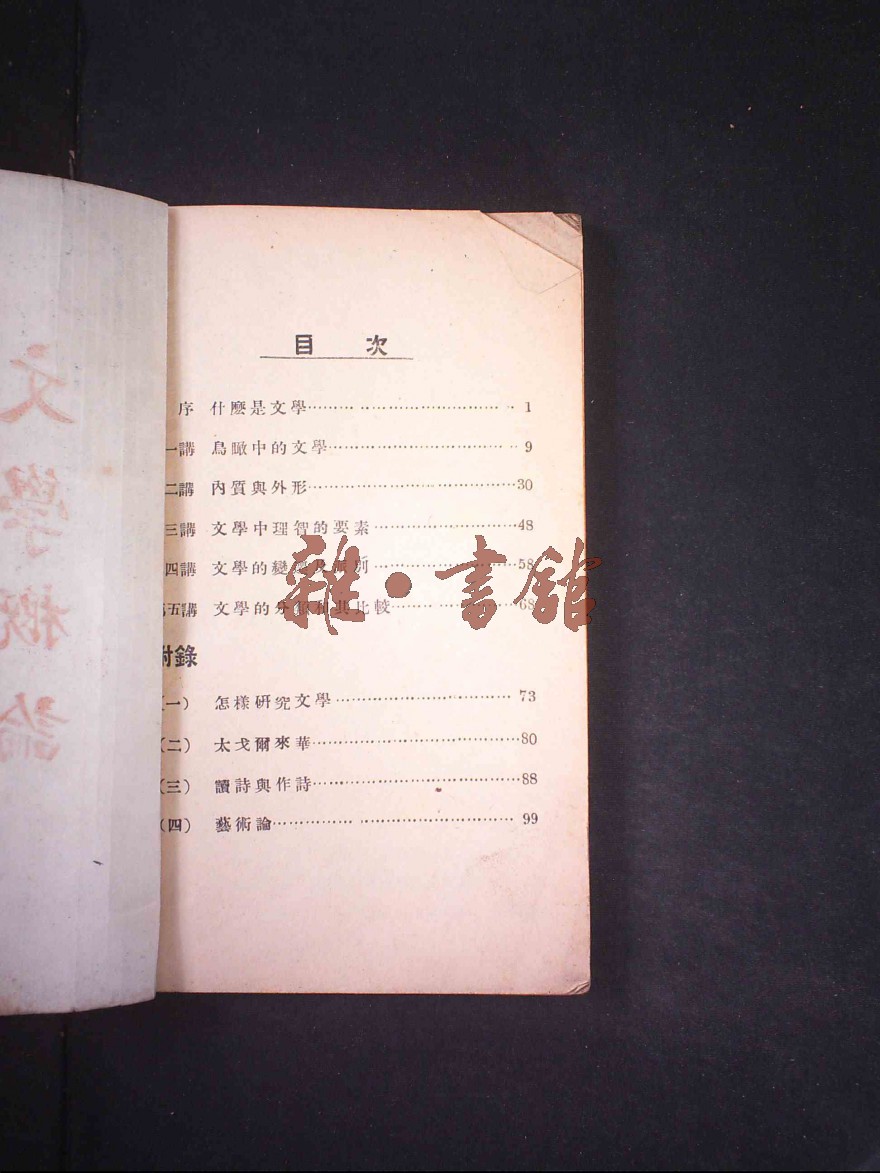 目 次
序 什麼是文學 1
一講 鳥瞰中的文學 9
二講 內質與外形 30
三講 文學中理智的要素 48
四講 文學的變 及 別 58
五講 文學的分 和其比較 68
附錄
(一) 怎樣研究文學 73
(二) 太戈爾來華 80
(三) 讀詩與作詩 88
(四) 藝術論 99
雜·書館
文學概論